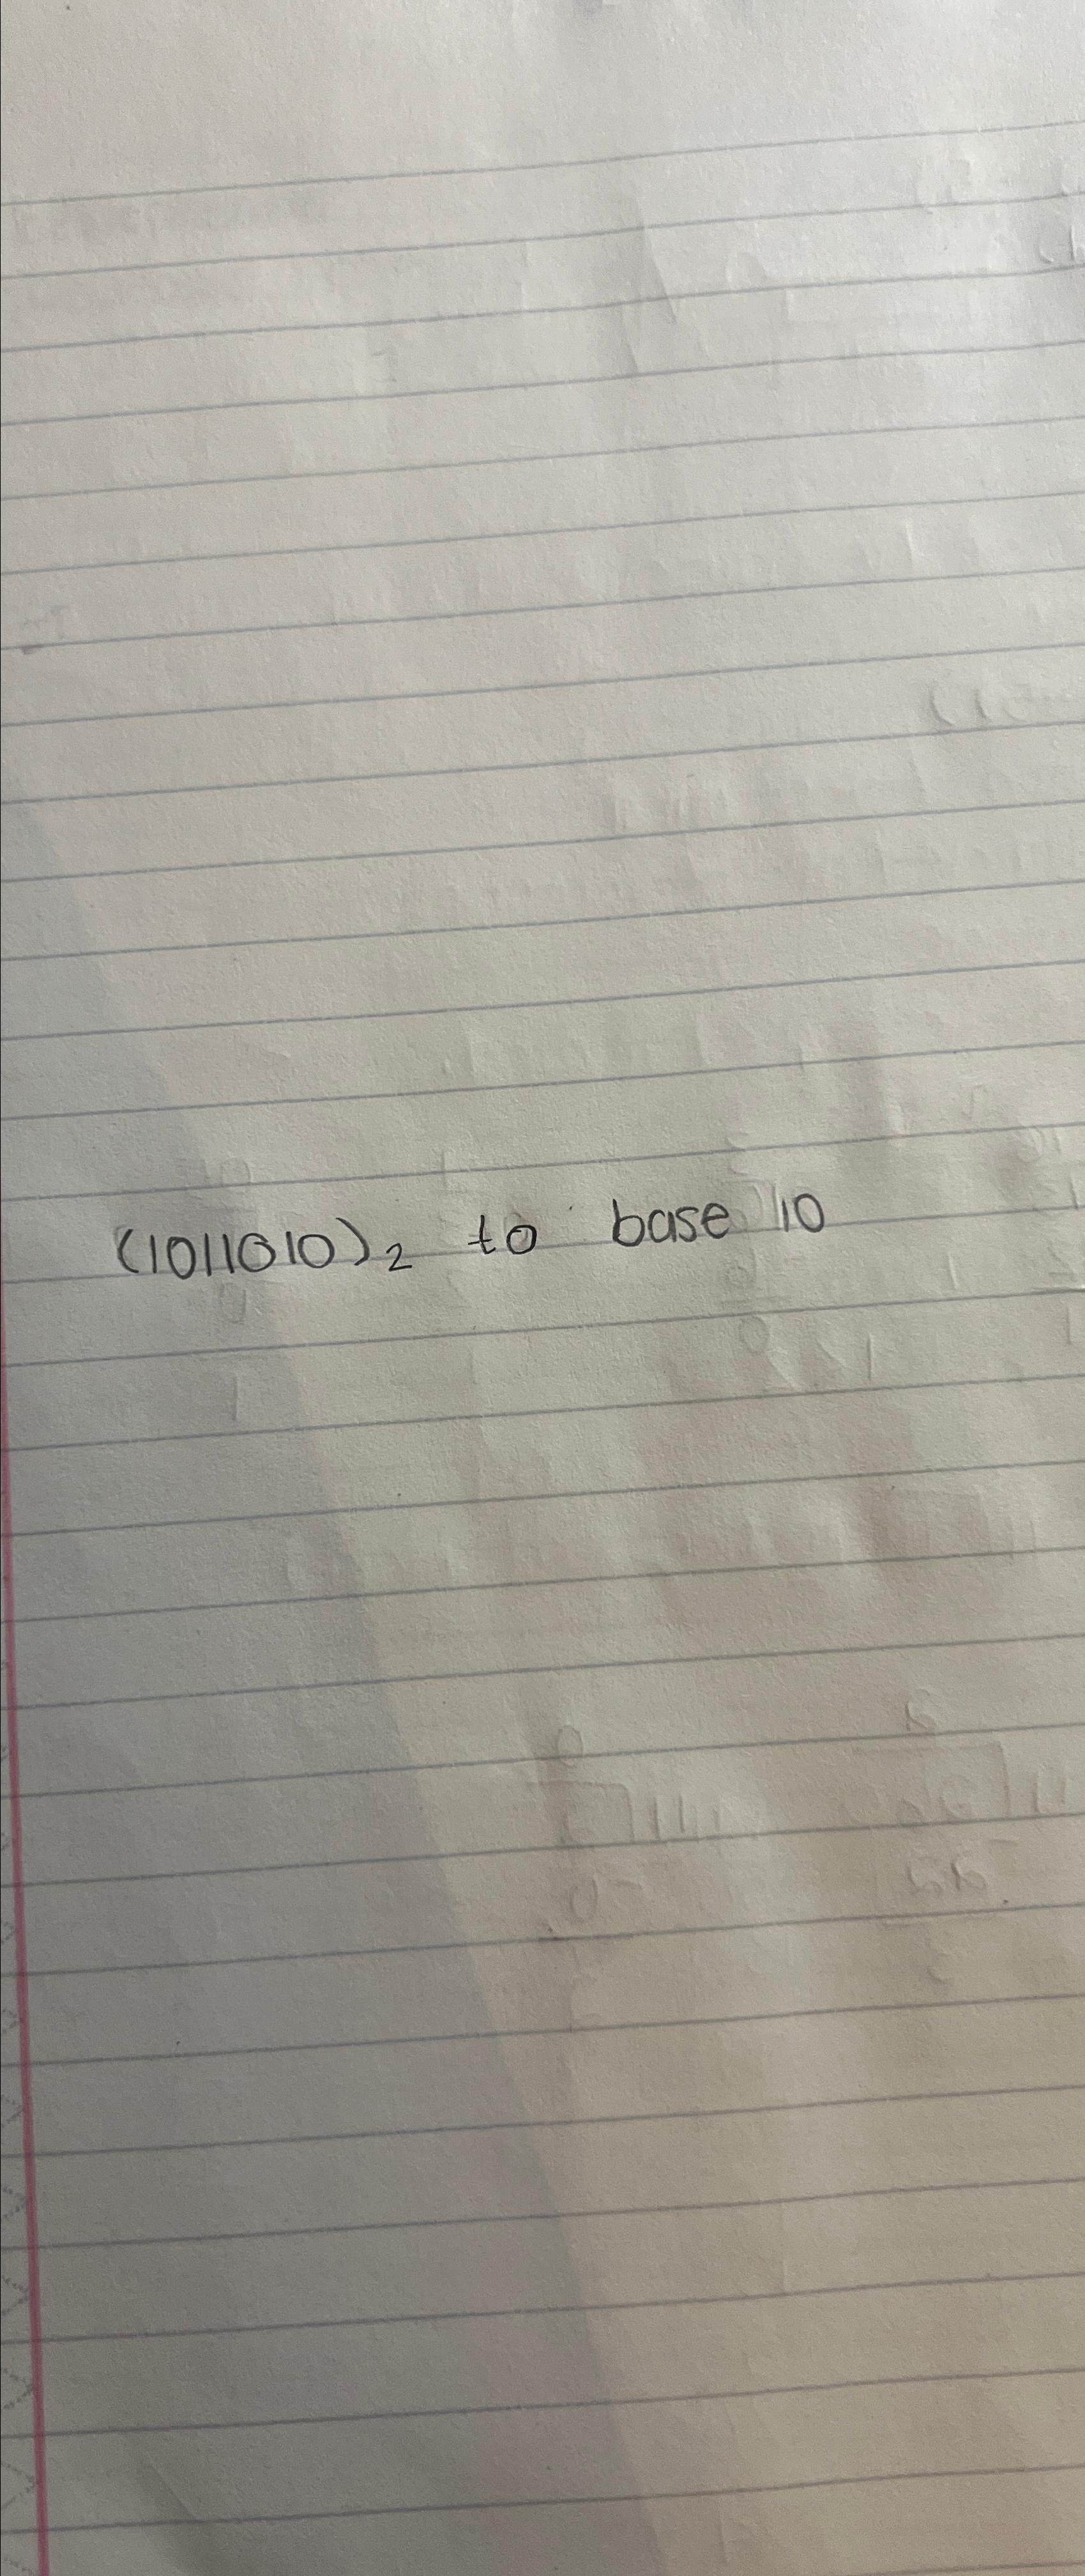 (1011010)₂ to base 10